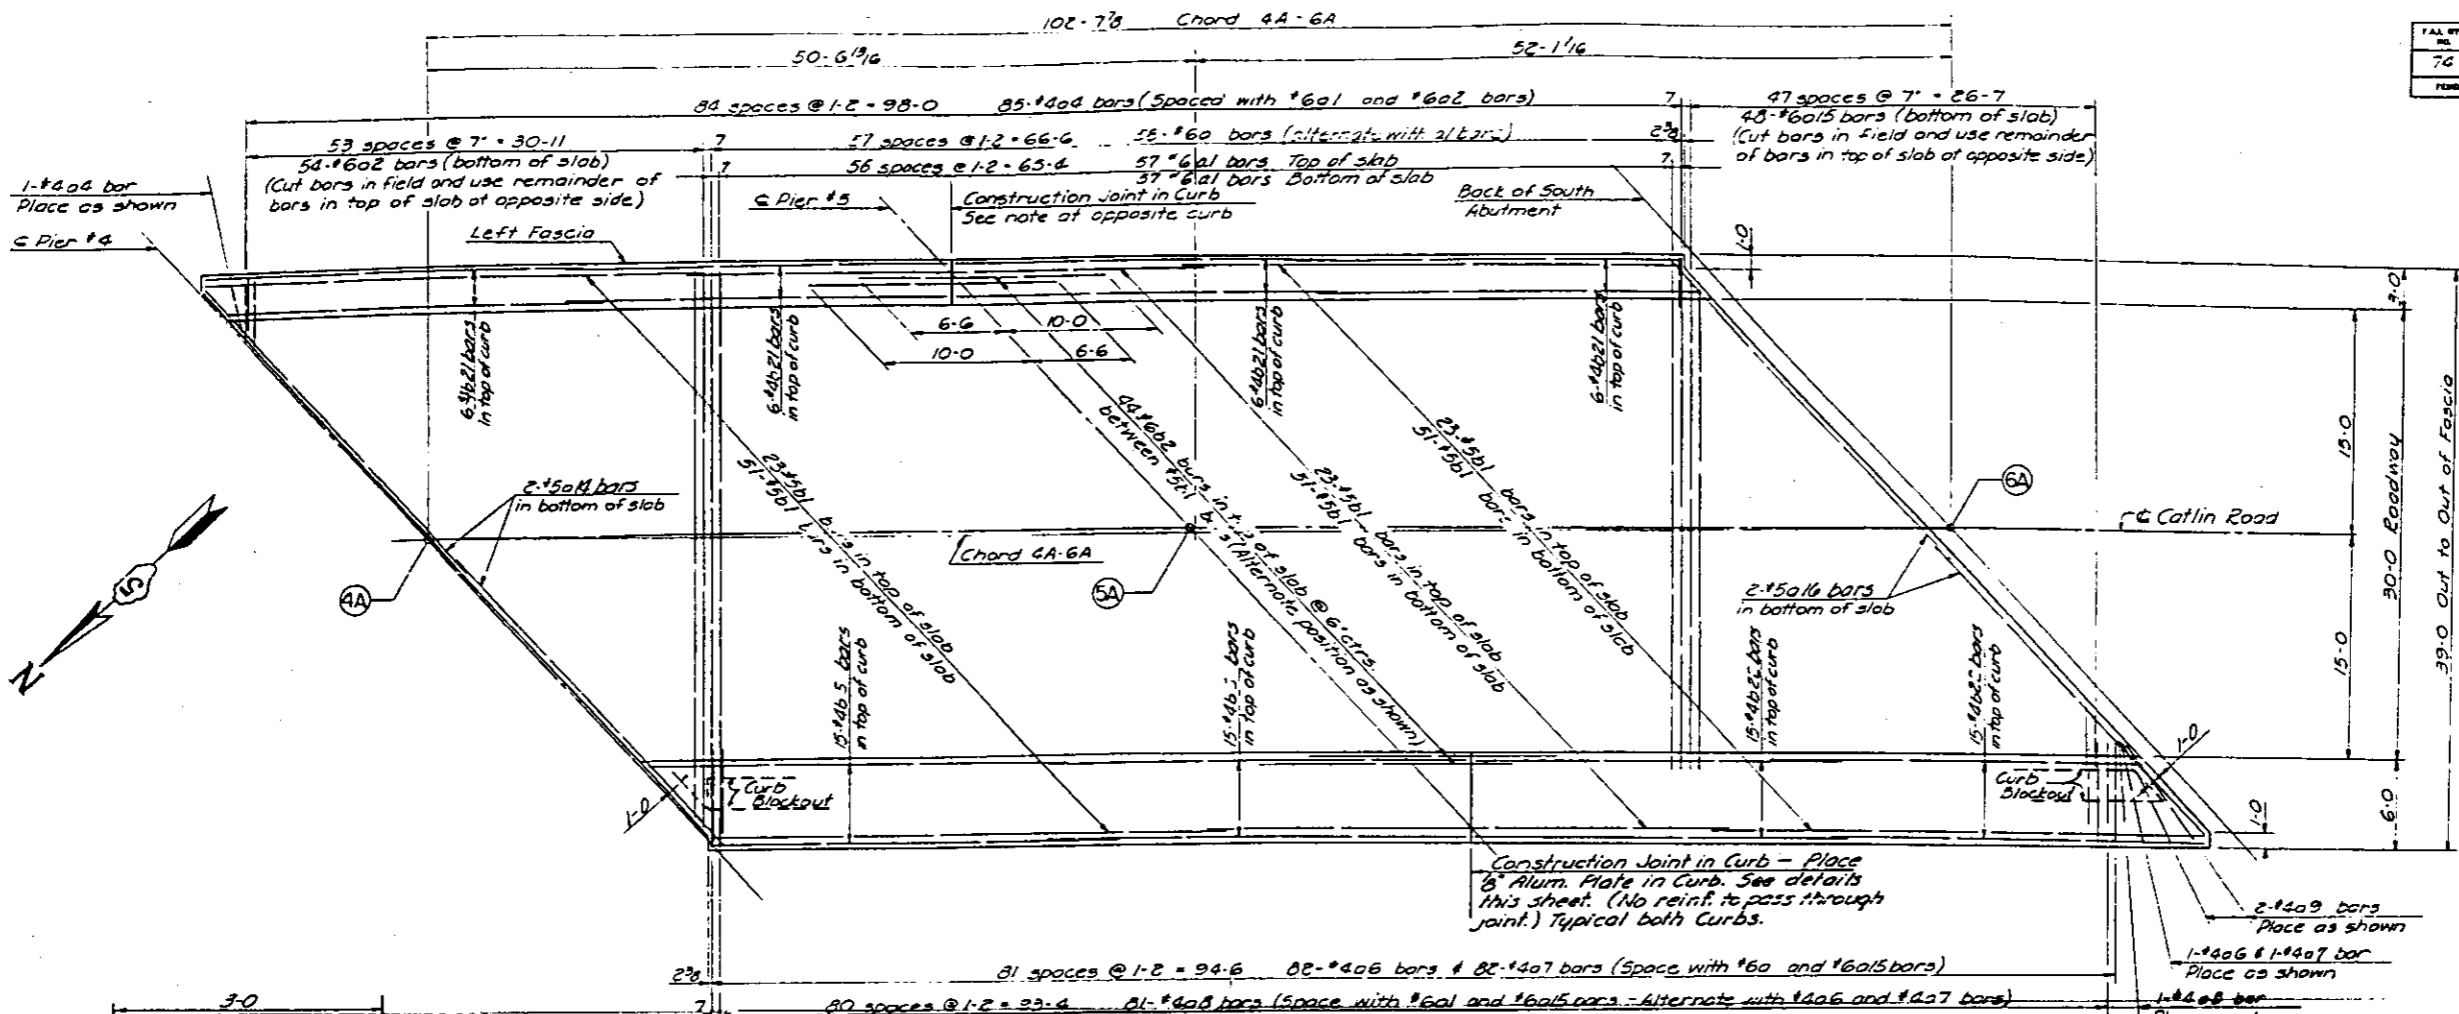 102-7⅞ Chord 4A-6A
50-6 13/16
52-1/16
74
84 spaces @ 1-2 = 98-0 85-#4a4 bars (Spaced with #6a1 and #6a2 bars)
7
47 spaces @ 7" = 26-7
48-#6a15 bars (bottom of slab)
(Cut bars in field and use remainder
of bars in top of slab at opposite side)
53 spaces @ 7" = 30-11
54-#6a2 bars (bottom of slab)
(Cut bars in field and use remainder of
bars in top of slab at opposite side)
7
57 spaces @ 1-2 = 66-6 58-#6a bars (alternate with a1 bars)
2⅜
7
56 spaces @ 1-2 = 65-4 57 #6a1 bars Top of slab
57 #6a1 bars Bottom of slab
7
1-#4a4 bar
Place as shown
℄ Pier #5
Construction Joint in Curb
See note at opposite curb
Back of South
Abutment
℄ Pier #4
Left Fascia
1-0
3-0
6-#4b21 bars
in top of curb
6-#4b21 bars
in top of curb
6-#4b21 bars
in top of curb
6-#4b21 bars
in top of curb
6-6
10-0
10-0
6-6
15-0
30-0 Roadway
39-0 Out to Out of Fascia
23-#5b1 bars in top of slab
51-#5b1 bars in bottom of slab
44 #6b2 bars in top of slab @ 6" ctrs.
between #5b1 bars (Alternate position as shown)
23-#5b1 bars in top of slab
51-#5b1 bars in bottom of slab
23-#5b1 bars in top of slab
51-#5b1 bars in bottom of slab
2-#5a14 bars
in bottom of slab
6A
℄ Catlin Road
Chord 4A-6A
4A
5A
2-#5a16 bars
in bottom of slab
S
N
15-0
15-#4b 5 bars
in top of curb
15-#4b bars
in top of curb
15-#4b22 bars
in top of curb
15-#4b22 bars
in top of curb
1-0
Curb
Blockout
Curb
Blockout
1-0
1-0
6-0
Construction Joint in Curb - Place
⅛" Alum. Plate in Curb. See details
this sheet. (No reinf. to pass through
joint.) Typical both Curbs.
2-#4a9 bars
Place as shown
1-#4a6 & 1-#4a7 bar
Place as shown
2⅜
81 spaces @ 1-2 = 94-6 82-#4a6 bars & 82-#4a7 bars (Space with #6a and #6a15 bars)
3-0
7
80 spaces @ 1-2 = 93-4 81-#4a8 bars (Space with #6a1 and #6a15 bars - Alternate with #4a6 and #4a7 bars)
1-#4a8 bar